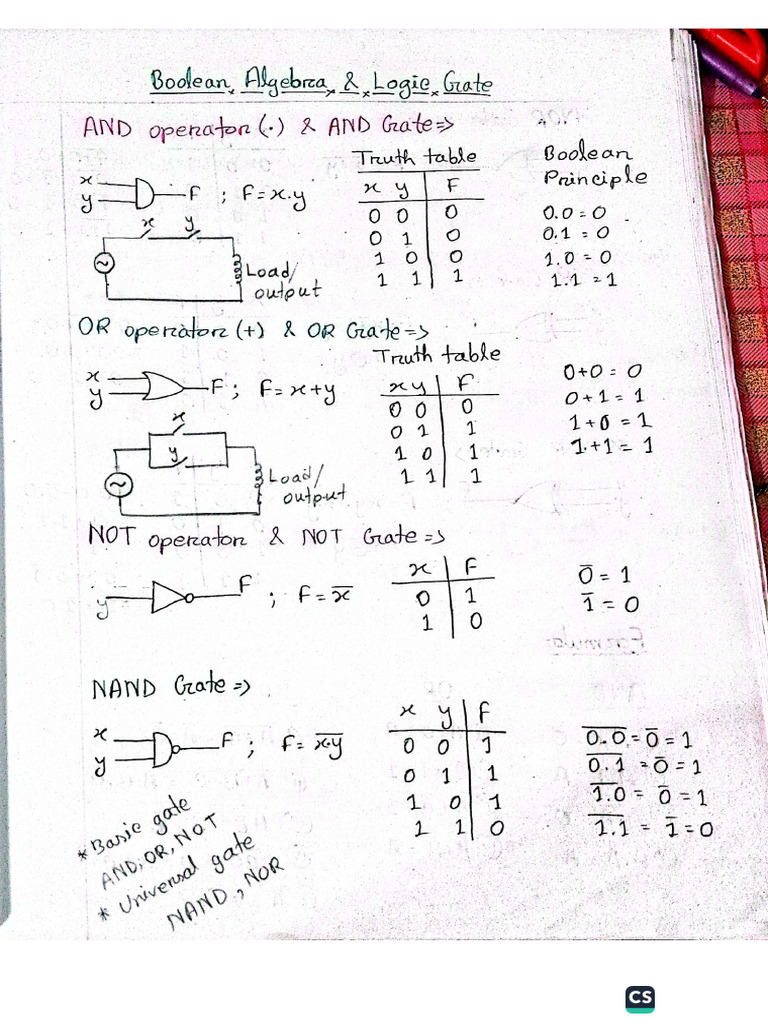 Boolean Algebra & Logic Gate
AND operator (·) & AND Gate ⇒
x
y
F ; F = x·y
Truth table
x y F
0 0 0
0 1 0
1 0 0
1 1 1
Boolean
Principle
0.0 = 0
0.1 = 0
1.0 = 0
1.1 = 1
x y
Load/
output
OR operator (+) & OR Gate ⇒
x
y
F ; F = x+y
Truth table
x y F
0 0 0
0 1 1
1 0 1
1 1 1
0+0 = 0
0+1 = 1
1+0 = 1
1+1 = 1
x
y
Load/
output
NOT operator & NOT Gate ⇒
y F ; F = x̅
x F
0 1
1 0
0̅ = 1
1̅ = 0
NAND Gate ⇒
x
y
F ; F = x̅·̅y̅
x y F
0 0 1
0 1 1
1 0 1
1 1 0
0̅.̅0̅ = 0̅ = 1
0̅.̅1̅ = 0̅ = 1
1̅.̅0̅ = 0̅ = 1
1̅.̅1̅ = 1̅ = 0
* Basic gate
AND, OR, NOT
* Universal gate
NAND, NOR
CS